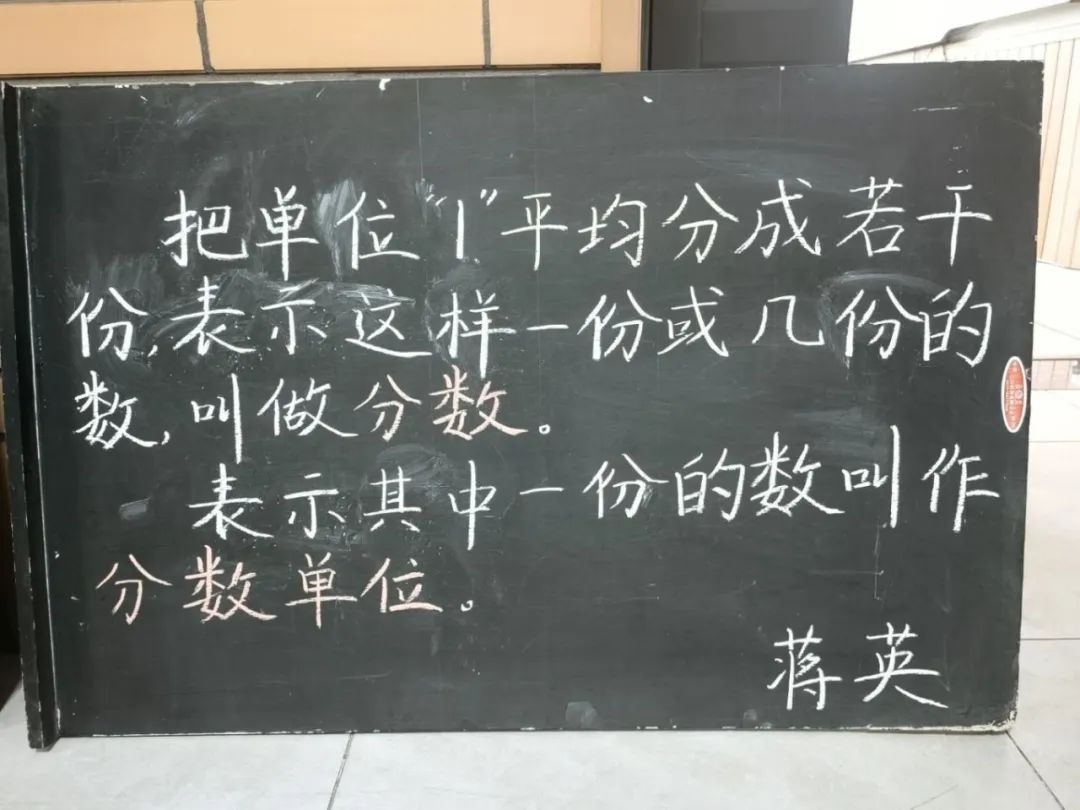 把单位“1”平均分成若干
份,表示这样一份或几份的
数,叫做分数。
表示其中一份的数叫作
分数单位。
蒋英